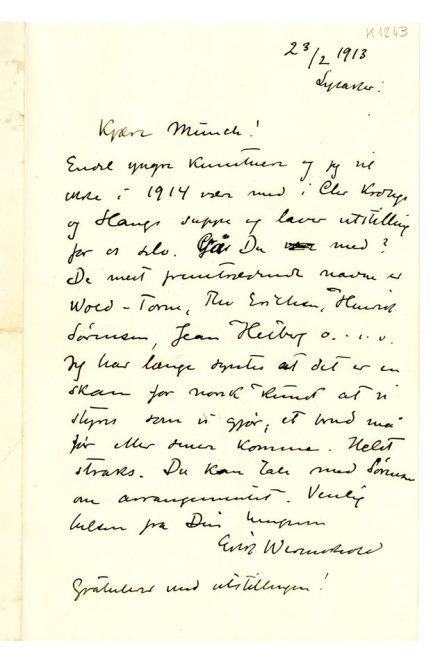 K1243
23/2 1913
Lysaker:
Kjære Munch!
Endel yngre kunstnere og jeg vil
ikke i 1914 være med i Chr Krohgs
og Haugs suppe og laver utstilling
for os selv. Går Du med?
De mest fremtrædende navne er
Wold-Torne, Thv Erichsen, Henrik
Sørensen, Jean Heiberg o...v.
Jeg har længe syntes at det er en
skam for norsk kunst at vi
styres som vi gjør; et brud må
før eller senere komme. Helst
straks. Du kan tale med Sørensen
om arrangementet. Venlig
hilsen fra Din
Erik Werenskiold
Gratulerer med utstillingen!